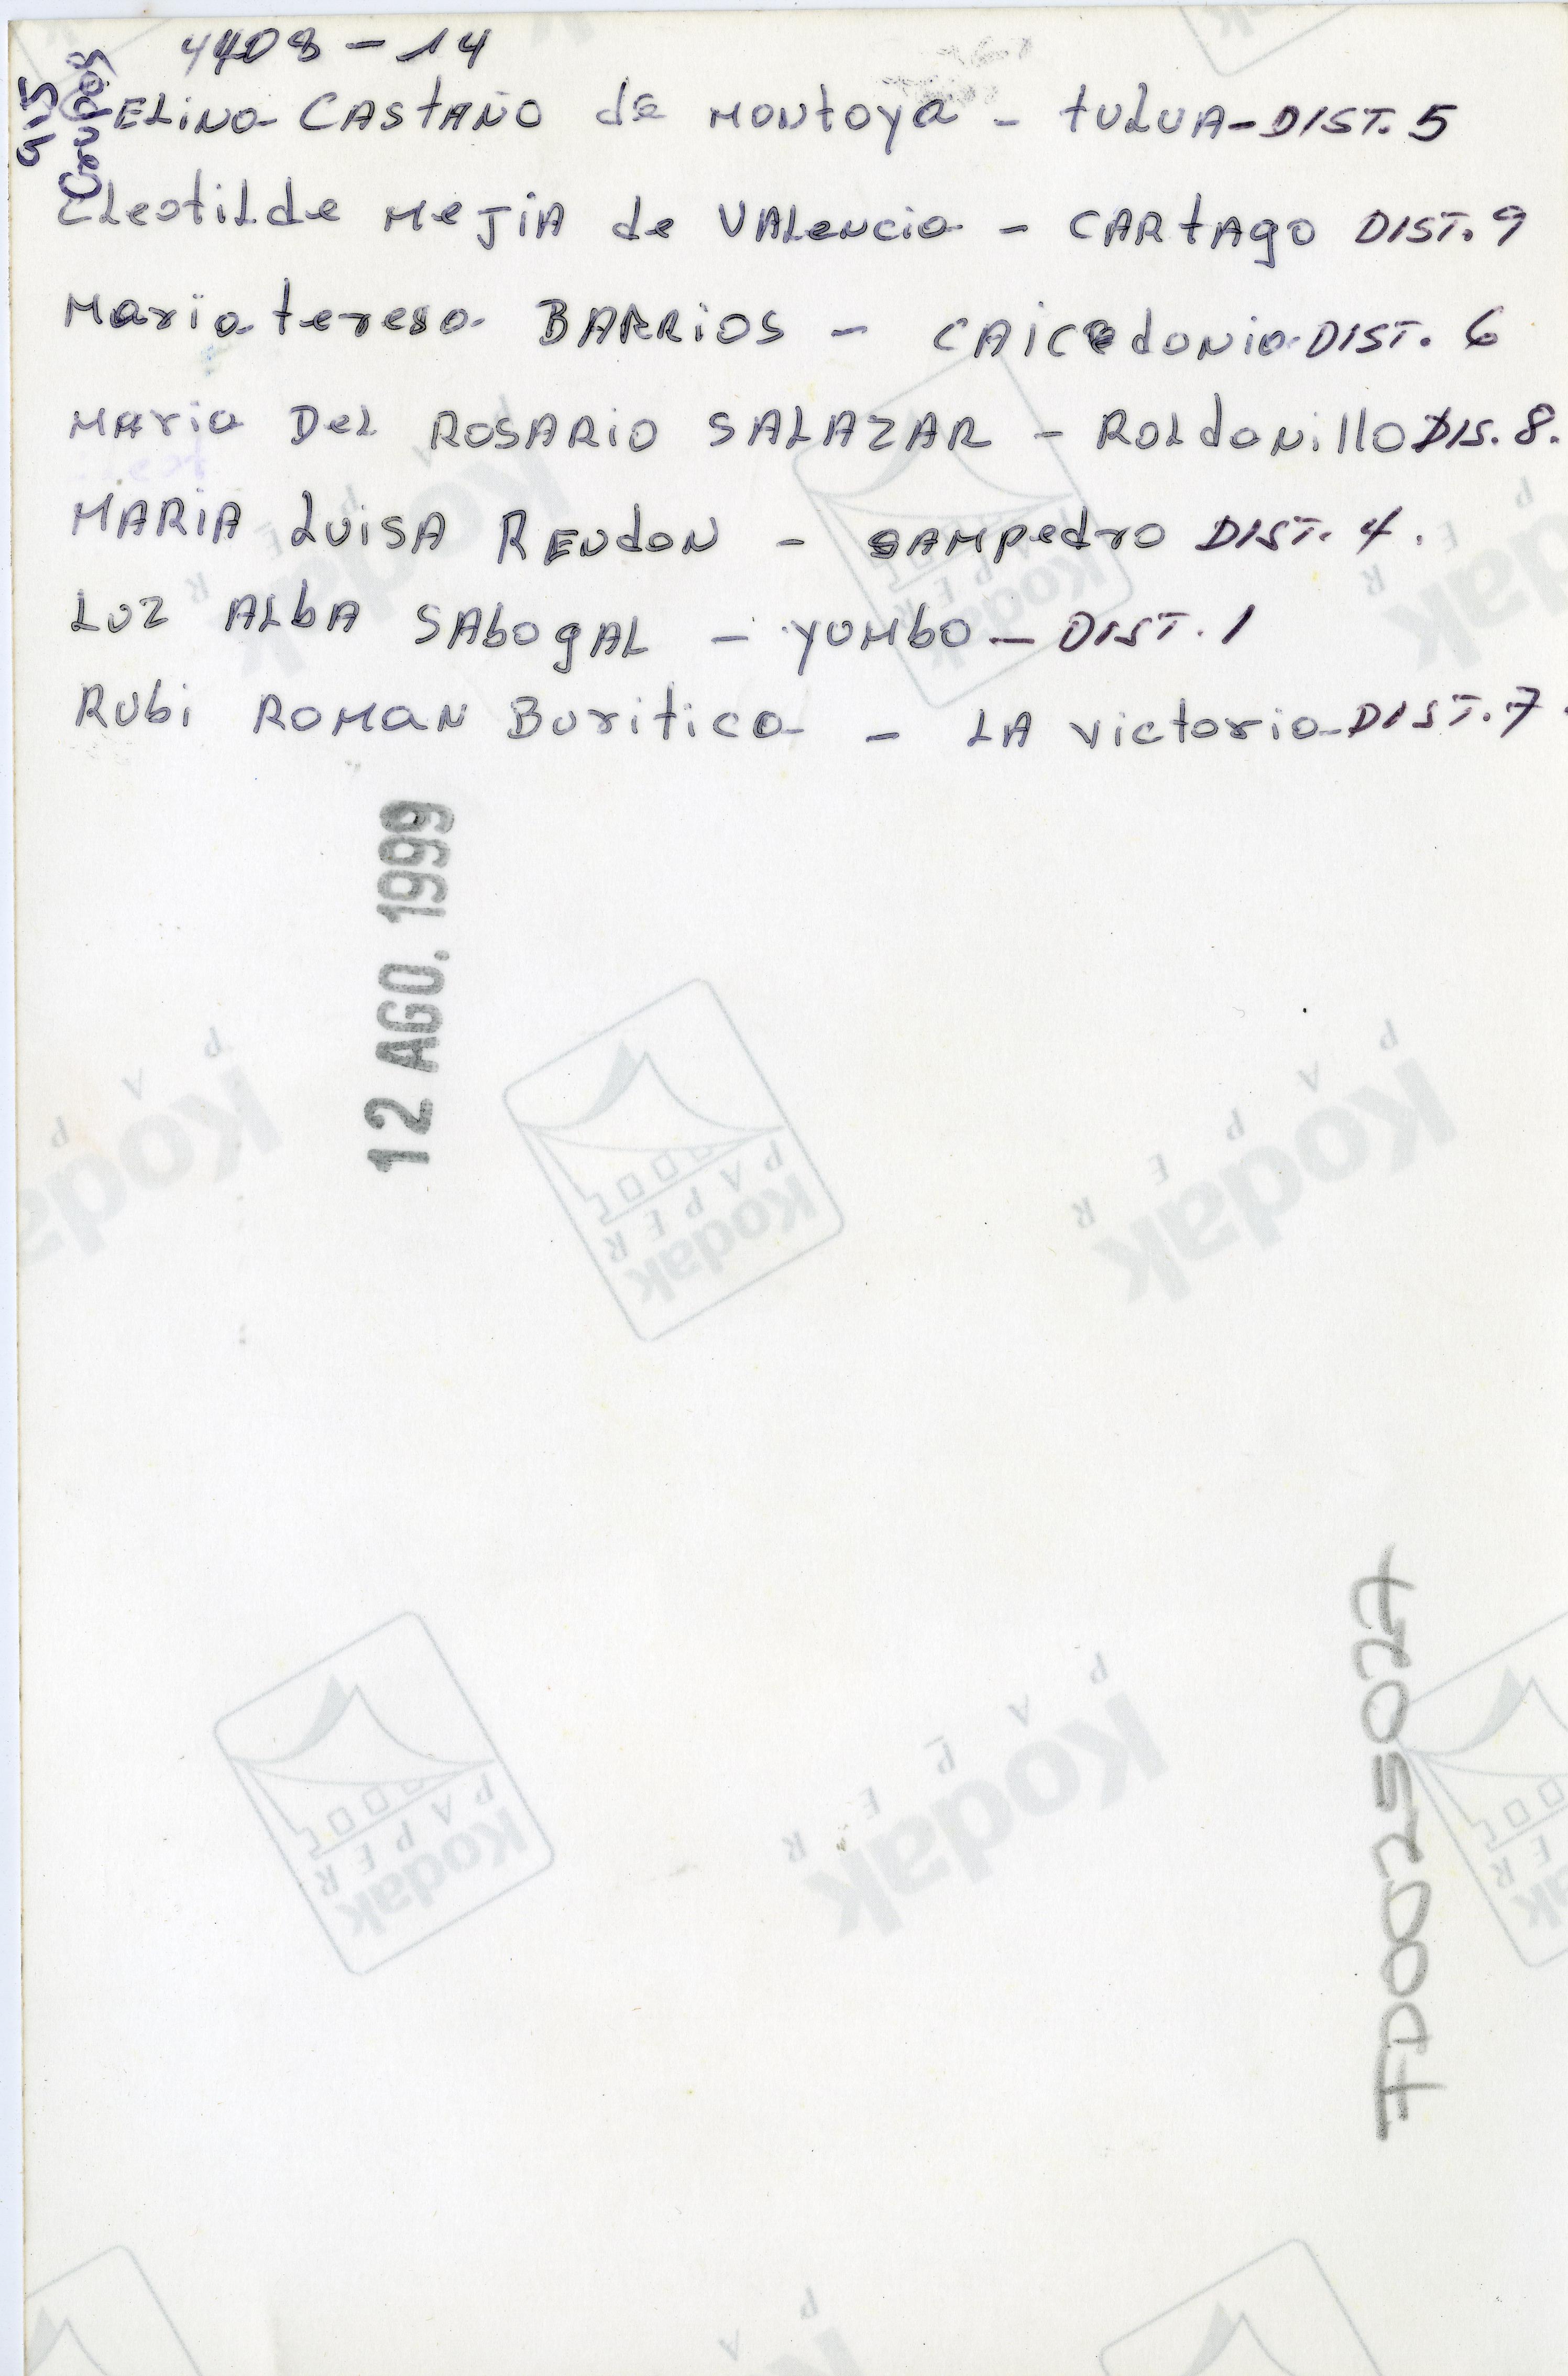 4408-14
915
Grupos
ELiNa CAStAÑO de MONtoya - tULUA-DIST. 5
CLeotiLde MeJiA de VALencia - CARtAgo DIST. 9
Maria teresa BARRiOS - CAiCedoNia DIST. 6
Maria DeL ROSARiO SALAZAR - RoLdaNillo DIS. 8.
MARiA LuiSA RENdoN - SAMpedro DIST. 4.
LUZ ALbA SAbogAL - YUMbo - DIST. 1
Rubi ROMaN Buritica - LA Victoria-DIST. 7.
12 AGO. 1999
Kodak
PAPER
Kodak
PAPER
Kodak
PAPER
Kodak
PAPER
Kodak
PAPER